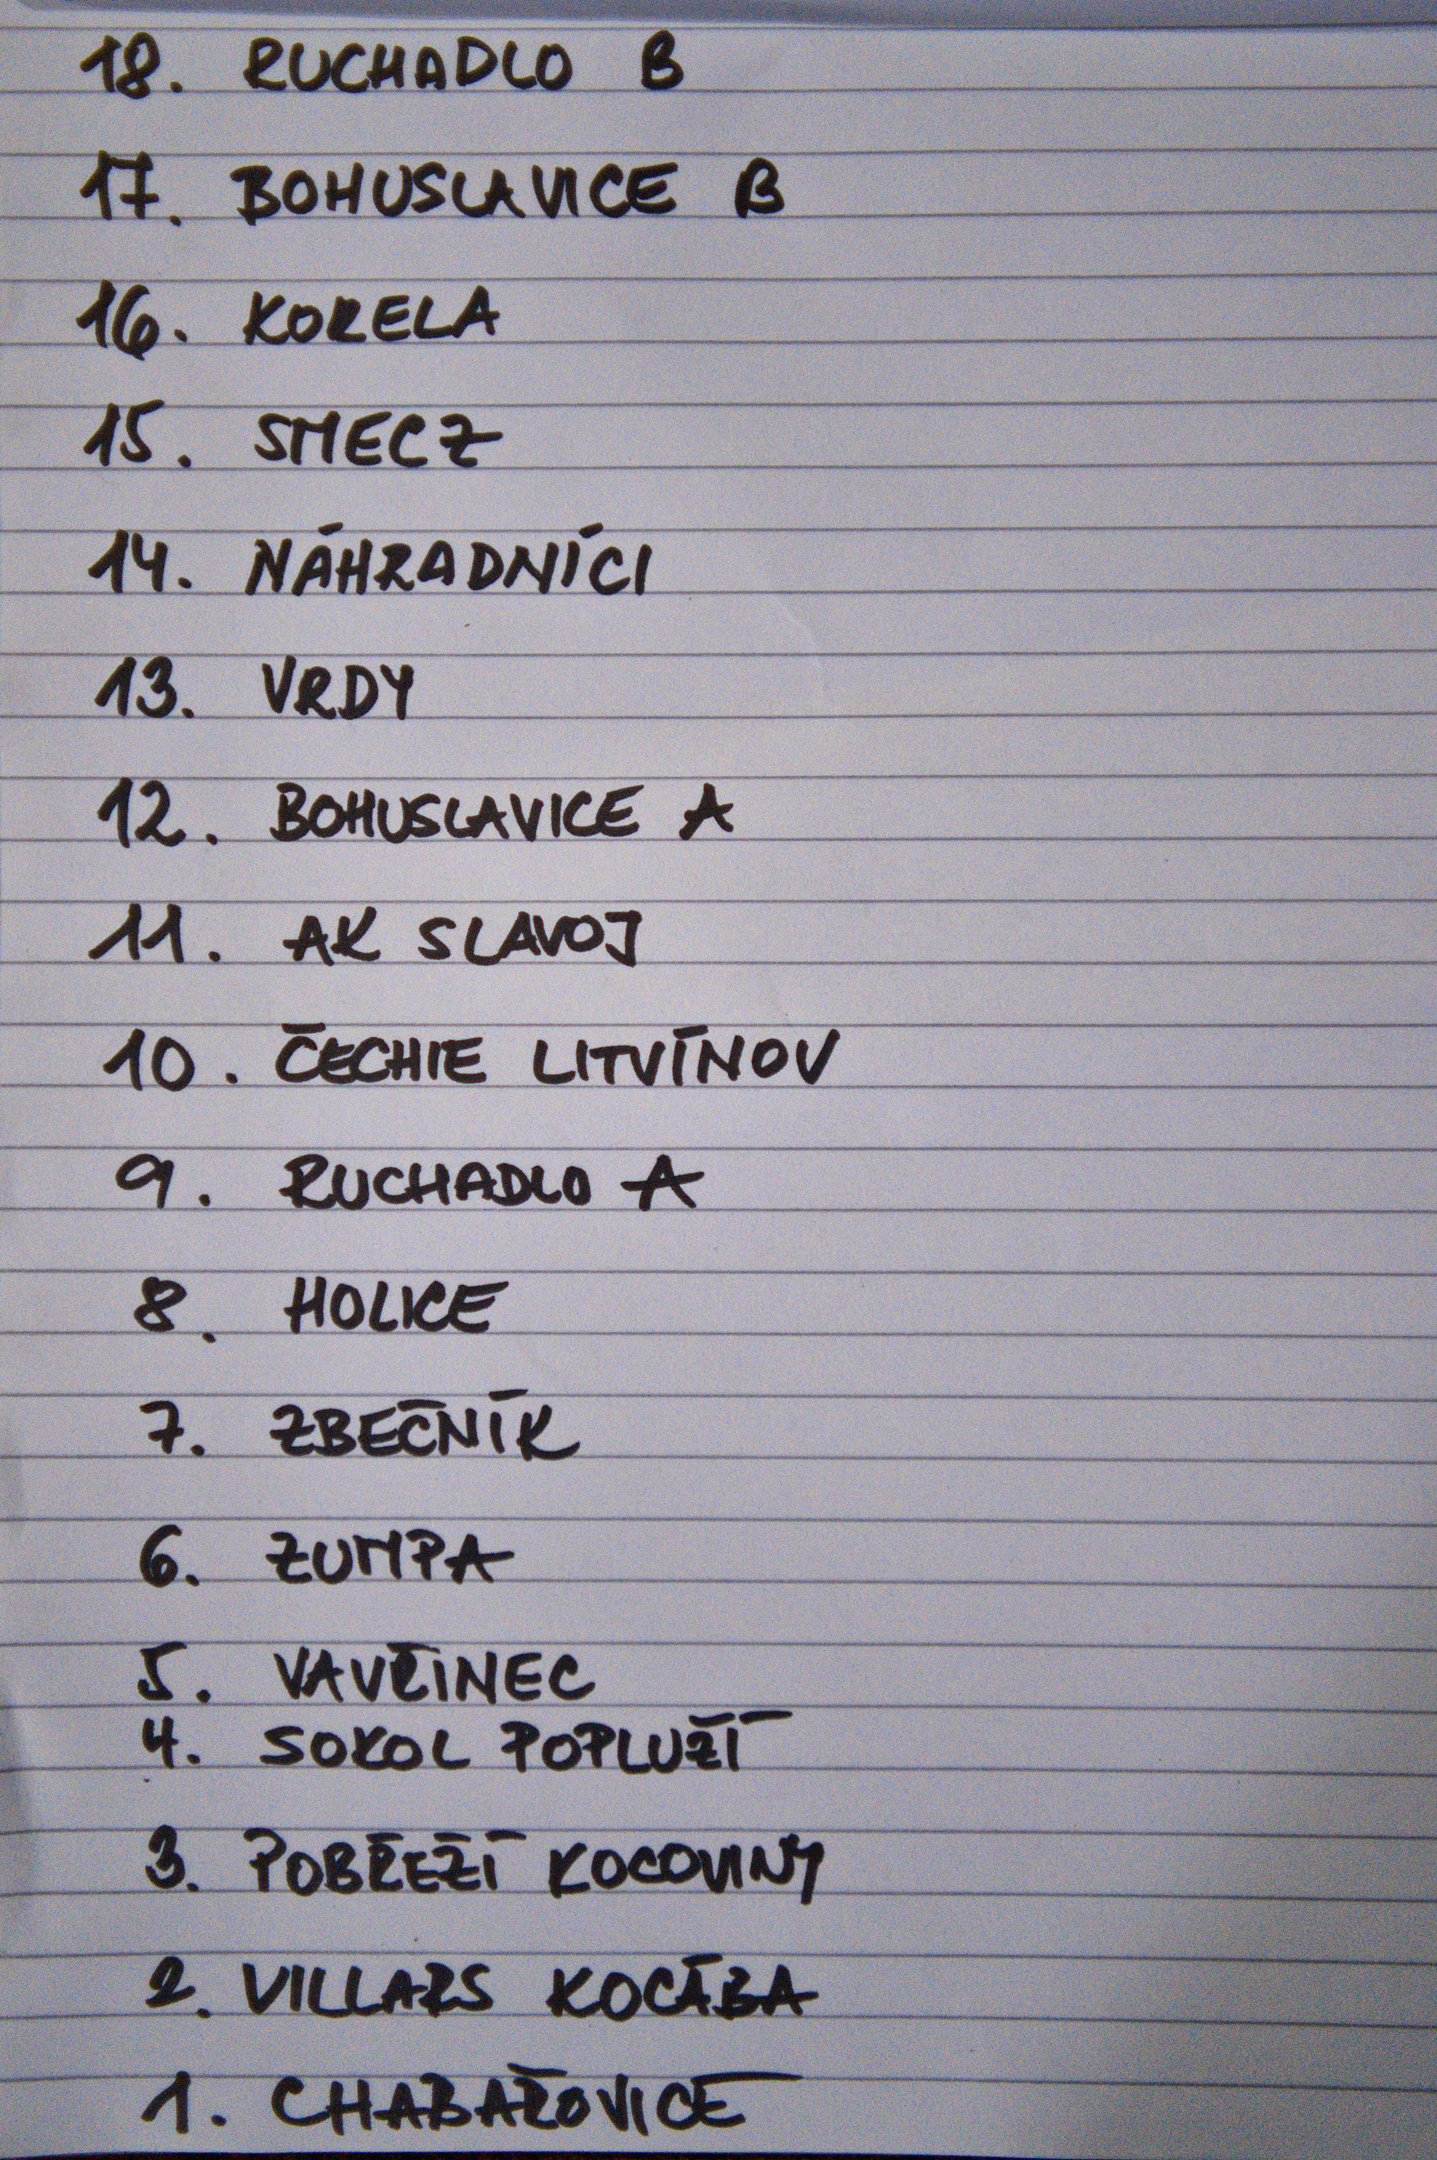 18. RUCHADLO B
17. BOHUSLAVICE B
16. KORELA
15. SMECZ
14. NÁHRADNÍCI
13. VRDY
12. BOHUSLAVICE A
11. AK SLAVOJ
10. ČECHIE LITVÍNOV
9. RUCHADLO A
8. HOLICE
7. ZBEČNÍK
6. ZUMPA
5. VAVŘINEC
4. SOKOL POPLUŽÍ
3. POBŘEŽÍ KOCOVINY
2. VILLARS KOCÁBA
1. CHABAŘOVICE